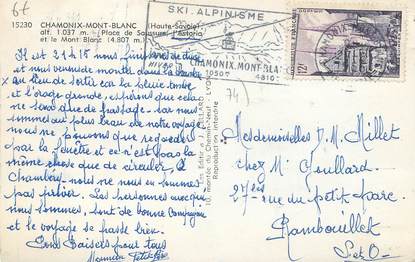 6f
15230 CHAMONIX-MONT-BLANC (Haute-Savoie)
alt. 1.037 m. Place de Saussure, l'Astoria
et le Mont Blanc (4.807 m.)
SKI. ALPINISME
CHAMONIX.MONT-BLANC
12F
74
Il est 21h15 nous finissons de dîner
et nous venons de monter dans la chambre
au lieu de sortir car la pluie tombe
et l'orage gronde, espérons que cela
ne sera que de passage. ici nous
sommes au plus beau de notre voyage
nous ne pouvons que regarder
par la fenêtre et ce n'est pas la
même chose que de circuler. à
Chambéry nous ne nous en sommes
pas privés. Les personnes avec qui
nous sommes, sont de bonne compagnie
et le voyage se passe bien.
Bons Baisers pour tous
Reproduction interdite
Mesdemoiselles D. M. Millet
chez Mr Goullard
27 rue du petit-parc
Rambouillet
S et O